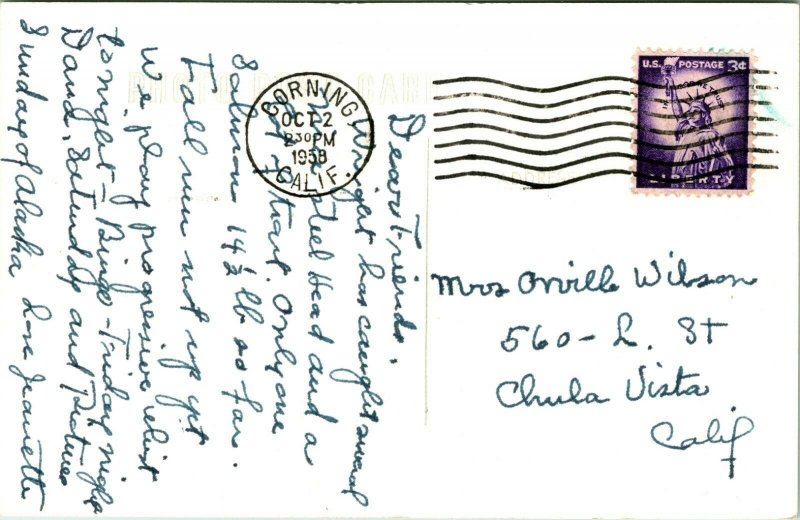 Dear Friends,
Wright has caught several
Steel Head and a
trout. Only one
Salmon 14½ lb so far.
Fall run not up yet
We play progressive whist
tonight - Bingo - Friday night
Dance, Saturday and Pictures
Sunday of Alaska Love Jeanette
CORNING
OCT 2
230 PM
1958
CALIF.
U.S. POSTAGE 3¢
LIBERTY
Mrs Orville Wilson
560 - L. St
Chula Vista
Calif